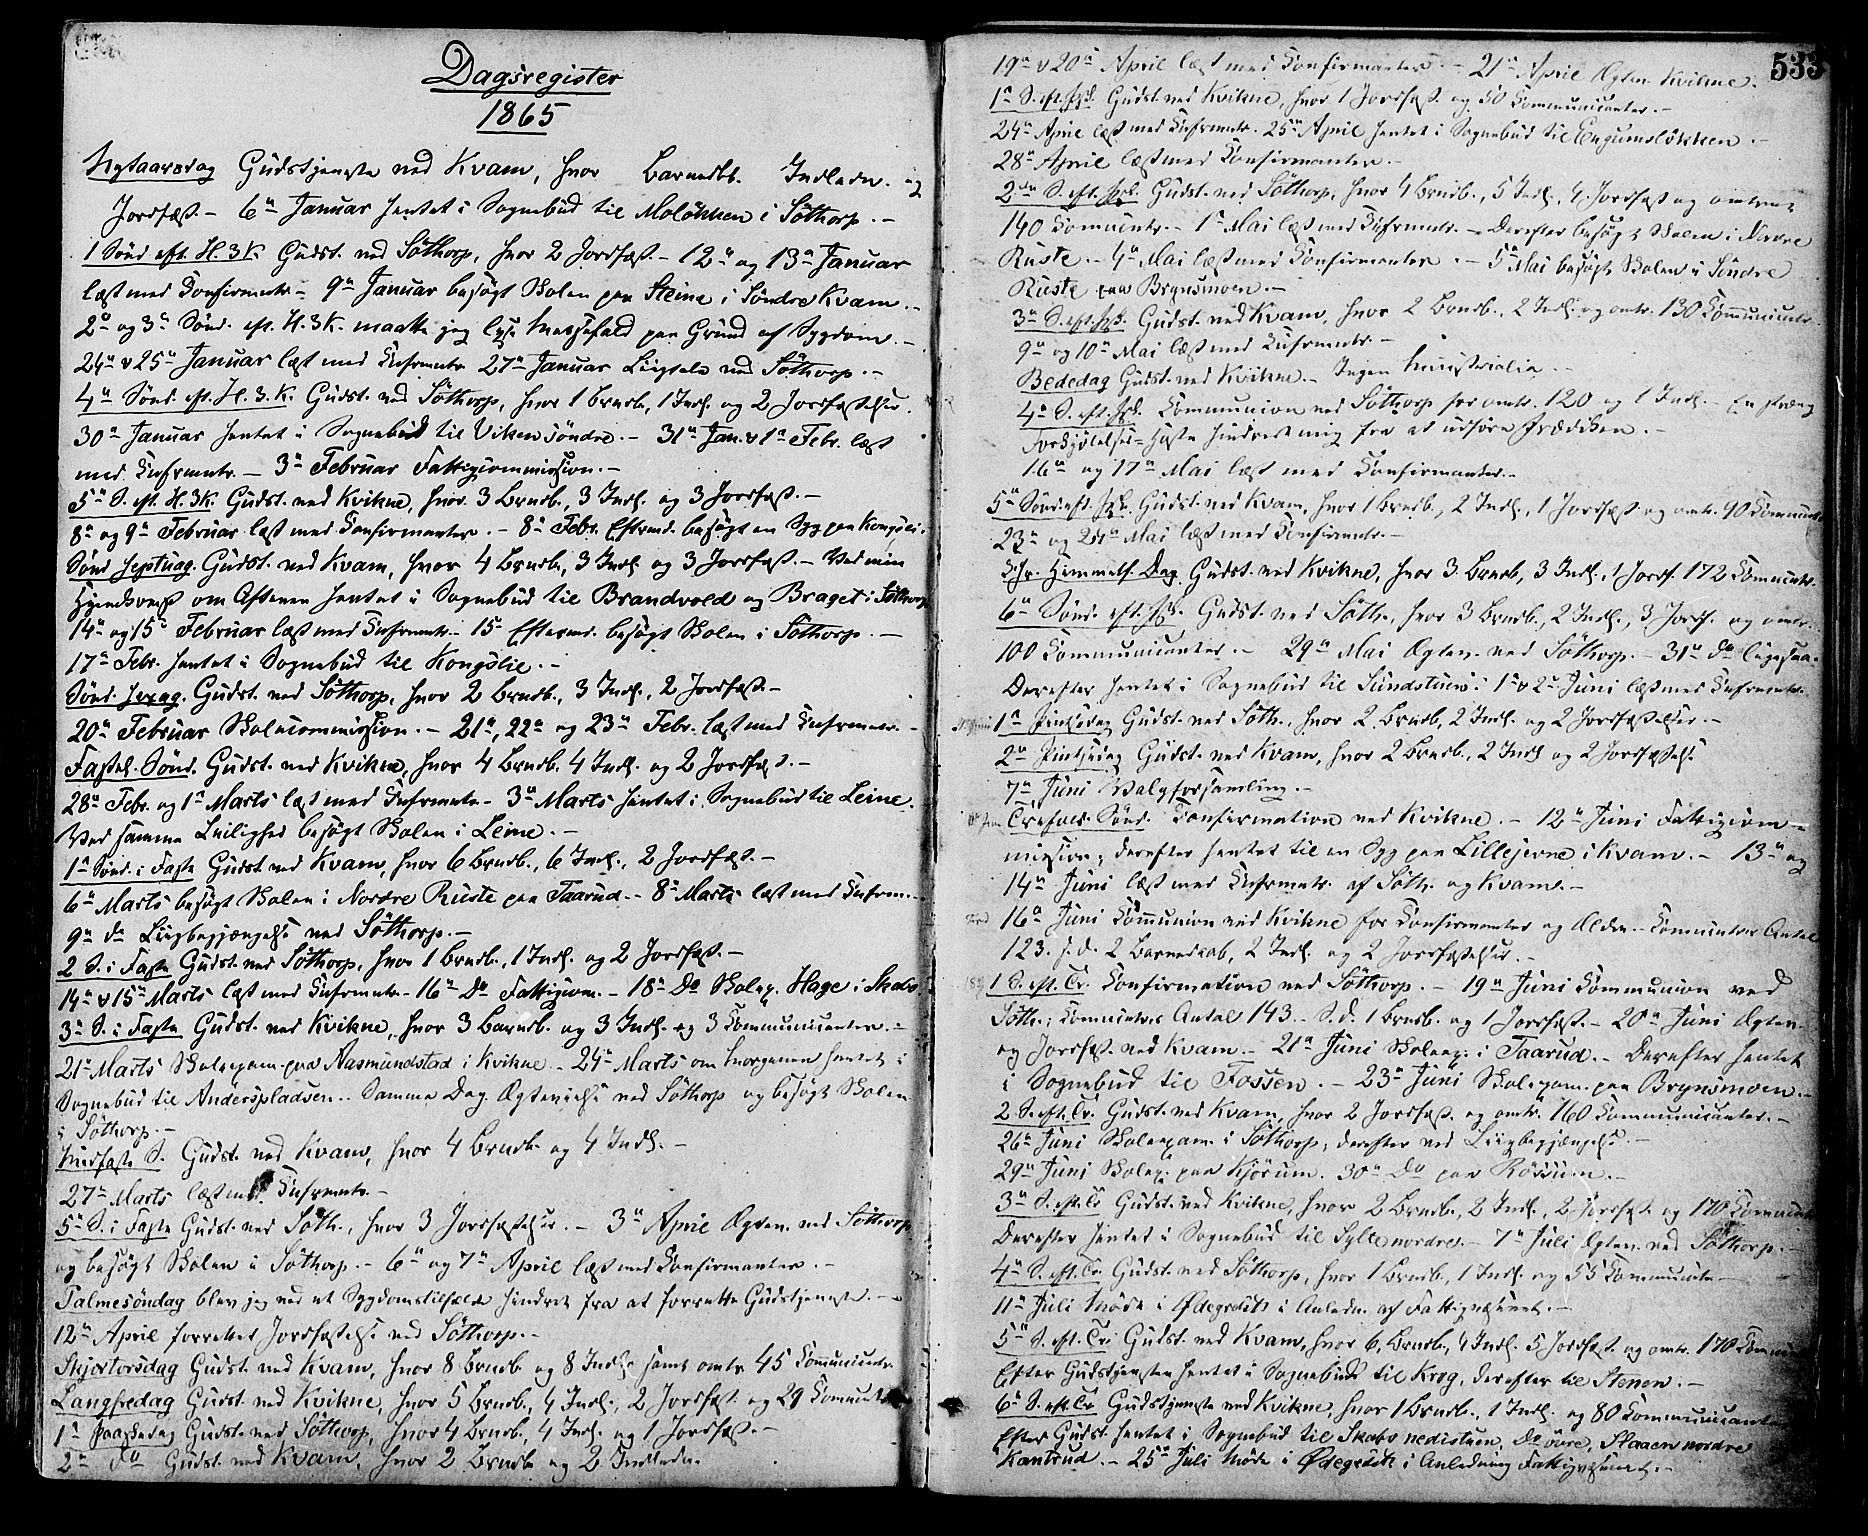 Dagsregister
1865
Nytaarsdag Gudstjeneste ved Kvam, hvor Barnedb. Indledn. - 2
Jordfæst. - 6te Januar hentet i Sognebud til Moløkken i Søthorp. -
1 Sønd. eft. H. 3 K. Gudst. ved Søthorp, hvor 2 Jordfæst. - 12te og 13de Januar
læst med Confirmntr. - 9de Januar besøgt Skolen paa Steine i Søndre Kvam. -
2den og 3de Sønd. eft. H. 3 K. maatte jeg lyse Messefald paa Grund af Sygdom. -
24de & 25de Januar læst med Cnfrmntr. 27de Januar Liigtale ved Søthorp. -
4de Sønd. eft. H. 3. K. Gudst. ved Søthorp, hvor 1 Brndb., 1 Indl. og 2 Jordfæstelser.
30te Januar hentet i Sognebud til Viken søndre. - 31te Jan. & 1ste Febr. læst
med Cnfrmntr. - 3de Februar Fattigcommission. -
5te S. eft. H. 3 K. Gudst. ved Kvikne, hvor 3 Brndb., 3 Indl. og 3 Jordfæst. -
8de og 9de Februar læst med Confirmanter. - 8de Febr. Eftermd. besøgt en Syg paa Kongslie.
Sønd. Septuag. Gudst. ved Kvam, hvor 4 Brndb., 3 Indl. og 3 Jordfæst. - Ved min
Hjemkomst om Aftenen hentet i Sognebud til Brandvold og Braget i Søthorp
14de og 15de Februar læst med Cnfrmntr. - 15de Eftermd. besøgt Skolen i Søthorp. -
17de Febr. hentet i Sognebud til Kongslie. -
Sønd. Sexag. Gudst. ved Søthorp, hvor 2 Brndb., 3 Indl., 2 Jordfæst. -
20de Februar Skolecommission. - 21de, 22de og 23de Febr. læst med Cnfrmntr. -
Fastel. Sønd. Gudst. ved Kvikne, hvor 4 Brndb. 4 Indl. og 2 Jordfæst. -
28de Febr. og 1ste Marts læst med Cnfrmntr. - 3de Marts hentet i Sognebud til Leine.
Ved samme Leilighed besøgt Skolen i Leine. -
1ste Sønd. i Faste Gudst. ved Kvam, hvor 6 Brndb., 6 Indl., 2 Jordfæst. -
6te Marts besøgt Skolen i Nordre Ruste paa Taarud. - 8de Marts læst med Cnfrm. -
9de do Liigbegjængelse ved Søthorp. -
2 S. i Faste Gudst. ved Søthorp, hvor 1 Brndb., 1 Indl. og 2 Jordfæst. -
14de & 15de Marts læst med Cnfrmntr. - 16de Do Fattigcom. - 18de Do Skolex. Hage i Skabo
3de S. i Faste Gudst. ved Kvikne, hvor 3 Barndb. og 3 Indl. og 3 Communicanter. -
21de Marts Skolexam. paa Aasmundstad i Kvikne. - 24de Marts om Morgenen hentet i
Sognebud til Anderspladsen. - Samme Dag Ægtevielse ved Søthorp og besøgt Skolen
i Søthorp. -
Midfaste S. Gudst. ved Kvam, hvor 4 Brndb. og 4 Indl. -
27de Marts læst med Cnfrmntr. -
5te S. i Faste Gudst. ved Søth., hvor 3 Jordfæstelser. - 3de April Ægtev. ved Søthorp
og besøgt Skolen i Søthorp. - 6te og 7de April læst med Confirmanter. -
Palmesøndag blev jeg ved et Sygdomstilfælde hindret fra at forrette Gudstjeneste. -
12te April forrettet Jordfæstelse ved Søthorp. -
Skjertorsdag Gudst. ved Kvam, hvor 8 Brndb. og 8 Indl. samt omtr. 45 Comunicntr.
Langfredag Gudst. ved Kvikne, hvor 5 Brndb., 4 Indl., 2 Jordfæst. og 29 Comunicnt
1ste Paaskedag Gudst. ved Søthorp, hvor 4 Brndb., 4 Indl. og 1 Jordfæst. -
2den do Gudst. ved Kvam, hvor 2 Brndb. og 2 Indledn.
533
19de & 20de April læst med Confirmanter. - 21de April Ægtev. Kvikne.
1ste S. eft. Psk. Gudst. ved Kvikne, hvor 1 Jordfæst. og 50 Communicanter. -
24de April læst med Cnfrmntr. 25de April hentet i Sognebud til Engumsløkken. -
28de April læst med Confirmanter. -
2den S. eft. Psk. Gudst. ved Søthorp, hvor 4 Brndb., 5 Indl., 4 Jordfæst. og omtrent
140 Comuicntr. - 1ste Mai læst med Cnfrmntr. - Derefter besøgt Skolen i Nordre
Ruste. - 4de Mai læst med Confirmanter. - 5te Mai besøgt Skolen i Søndre
Ruste paa Brynsmoen. -
3de S. eft. Psk. Gudst. ved Kvam, hvor 2 Brndb., 2 Indl. og omtr. 130 Communicntr.
9de og 10de Mai læst med Cnfrmntr. -
Bededag Gudst. ved Kvikne. - Ingen Ministerialia. -
4de S. eft. Psk. Communion ved Søthorp for omtr. 120 og 1 Indl. - En streng
Forkjølelses-Hoste hindrede mig fra at udføre Prædiken. -
16de og 17de Mai læst med Confirmanter. -
5te Sønd. eft. Psk. Gudst. ved Kvam, hvor 1 Brndb., 2 Indl., 1 Jordfæst og omtr. 90 Comunicnt
23de og 24de Mai læst med Confirmntr. -
Chr. Himmelf. Dag Gudst. ved Kvikne, hvor 3 Brndb, 3 Indl., 1 Jordf. 172 Comuicntr.
6te Sønd. eft. Psk. Gudst. ved Søth., hvor 3 Brndb., 2 Indl., 3 Jordf. og omtr.
100 Communicanter. - 29de Mai Ægtev. ved Søthorp. - 31te do ligesaa.
Derefter hentet i Sognebud til Sundstuen. 1ste & 2den Juni læst med Cnfrmntr.
1ste Pintsedag Gudst. ved Søth., hvor 2 Brndb, 2 Indl. og 2 Jordfæstelser. -
2den Pintsedag Gudst. ved Kvam, hvor 2 Brndb., 2 Indl. og 2 Jordfæstels.
7de Juni Valgforsamling. -
Trefold. Sønd. Confirmation ved Kvikne. - 12te Juni Fattigcom-
mission; derefter hentet til en Syg paa Lillejevne i Kvam. - 13de og
14de Juni læst med Cnfrmntr. af Søth. og Kvam. -
16de Juni Communion ved Kvikne for Confirmanter og Ældre. - Comunicntrs Antal
123. s. d. 2 Barnedaab, 2 Indl. og 2 Jordfæstelser. -
1 S. eft. Tr. Confirmation ved Søthorp. - 19de Juni Communion ved
Søth.; Comuicntrs Antal 143. - S. d. 1 Brndb. og 1 Jordfæst. - 20de Juni Ægtev.
og Jordfæst. ved Kvam. - 21de Juni Skolex. i Taarud. - Derefter hentet
i Sognebud til Fossen. - 23de Juni Skolexam. paa Brynsmoen. -
2 S. eft. Tr. Gudst. ved Kvam, hvor 2 Jordfæst. og omtr. 160 Communicanter. -
26de Juni Skolexam. i Søthorp, derefter ved Liigbegjængelse. -
29de Juni Skolex. paa Kjørum. 30te Do paa Røssum. -
3de S. eft. Tr. Gudst. ved Kvikne, hvor 2 Brndb., 2 Indl., 2 Jordfæst. og 170 Comunicnt
Derefter hentet i Sognebud til Sylte nordre. - 7de Juli Ægtev. ved Søthorp. -
4de S. eft. Tr. Gudst. ved Søthorp, hvor 1 Brndb., 1 Indl. og 55 Communicntr.
11te Juli Møde i Ødegerdets i Anledn. af Fattigvæsenet. -
5te S. eft. Tr. Gudst. ved Kvam, hvor 6 Brndb., 4 Indl. 5 Jordfæst. og omtr. 170 Comunicnt
Efter Gudstjenesten hentet i Sognebud til Krog, derefter til Stenen. -
6te S. eft. Tr. Gudstjeneste ved Kvikne, hvor 1 Brndb., 1 Indl. og 80 Communicanter
Efter Gudst. hentet i Sognebud til Skabo nedistuen, Do øvre, Slaaen nordre
Kantrud. - 25de Juli Møde i Ødegerdet i Anledning Fattigvæsenet. -